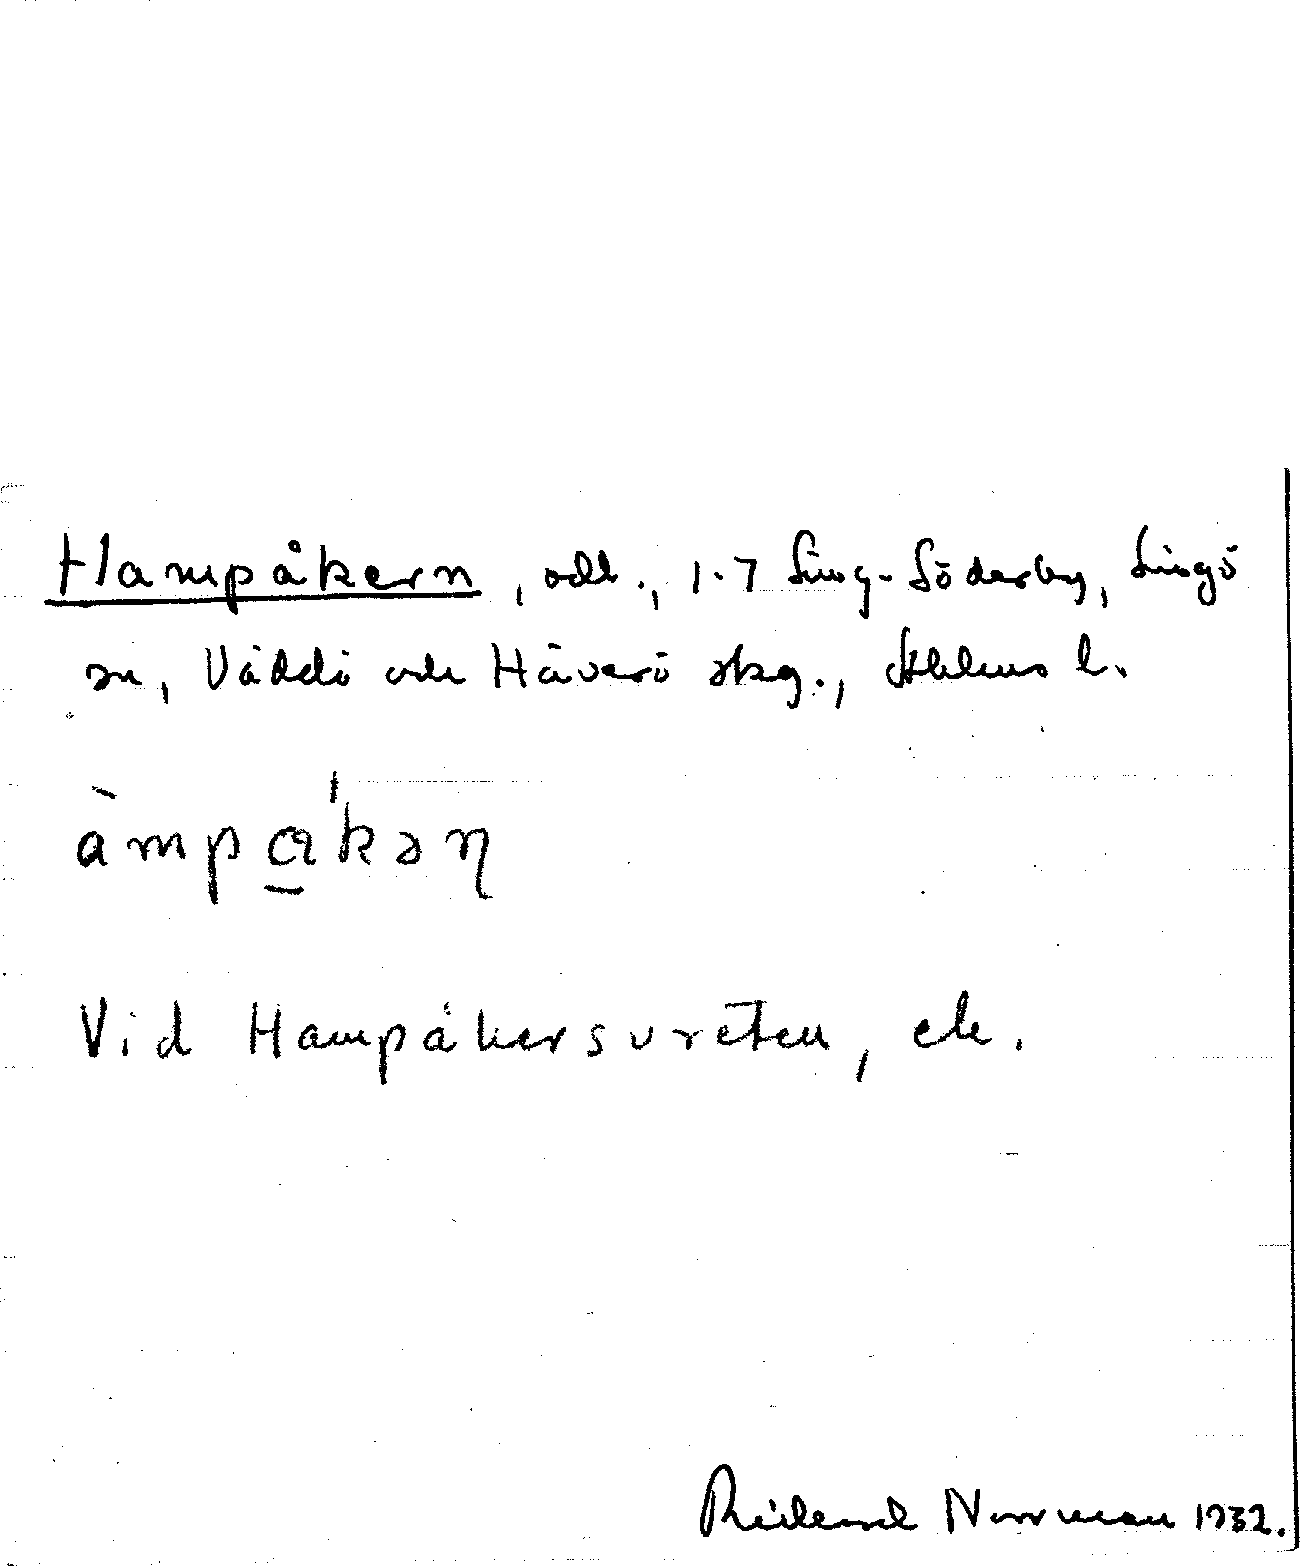 Hampåkern, odl., 1.7 Sing-Söderby, Singö
sn, Väddö och Häverö skg., Sthlms l.
Vid Hampåkersvreten, ek.
Norrman 1932.